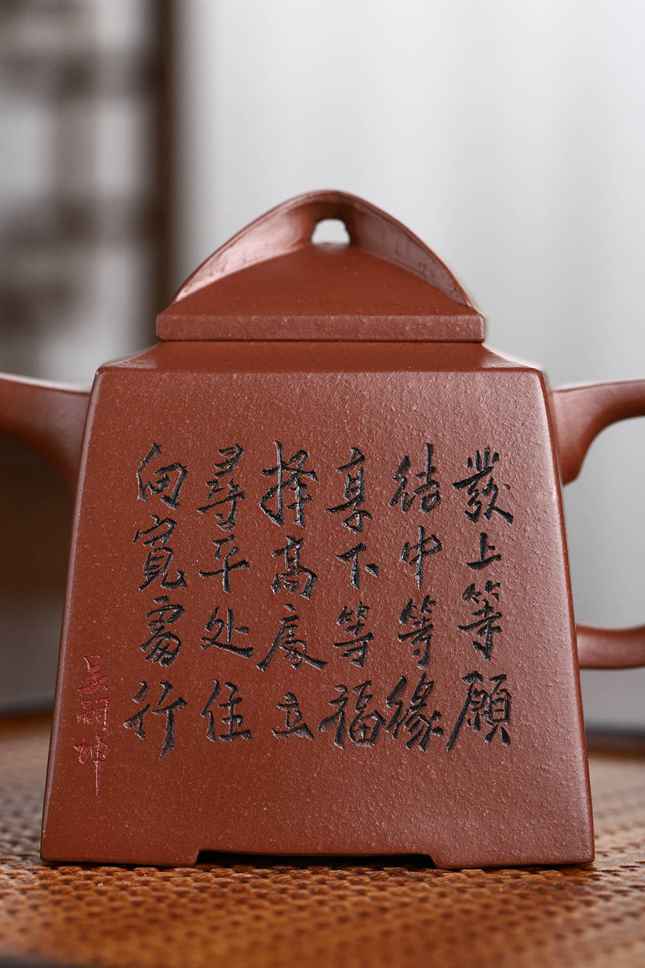 發上等願
結中等緣
享下等福
擇高處立
尋平处住
向寬處行